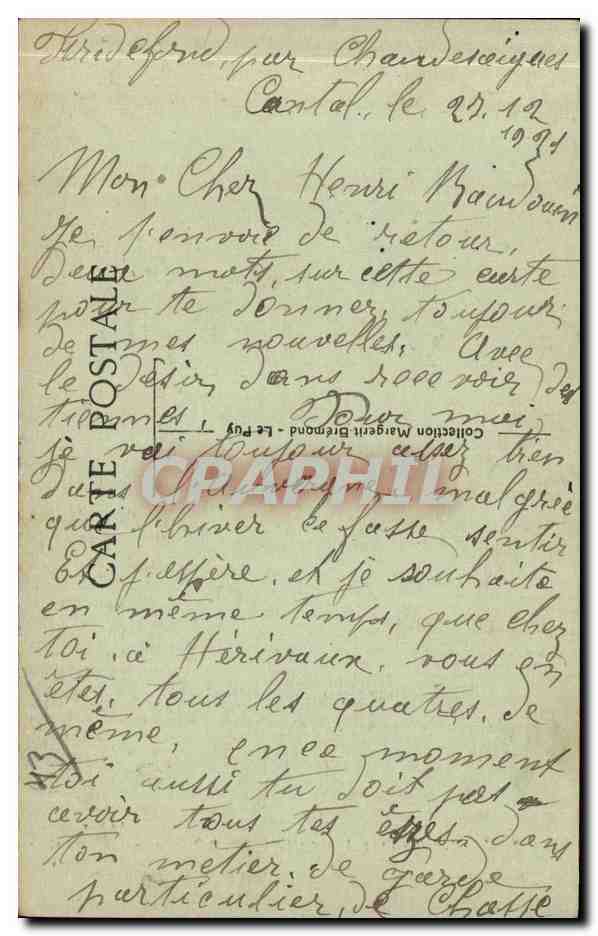 par Chaudesaigues
Cantal, le 27.12
1921
Mon Cher Henri Baudouin
Je t'envoie de retour,
deux mots, sur cette carte
pour te donner, toujour,
de mes nouvelles. Avec
le désir, dans recevoir des
tiennes. Pour moi,
je vai toujour assez bien
dans l'auvergne, malgrée
que l'hiver ce fasse sentir
Et j'espère, et je souhaite
en même temps, que chez
toi, à Hérivaux, vous en
êtes, tous les quatres, de
même, en ce moment
toi aussi tu doit pas
avoir tous tes dans
ton métier, de garde
particulier, de Chasse
CARTE POSTALE
Collection Margerit Brémond - Le Puy
CPARPHIL